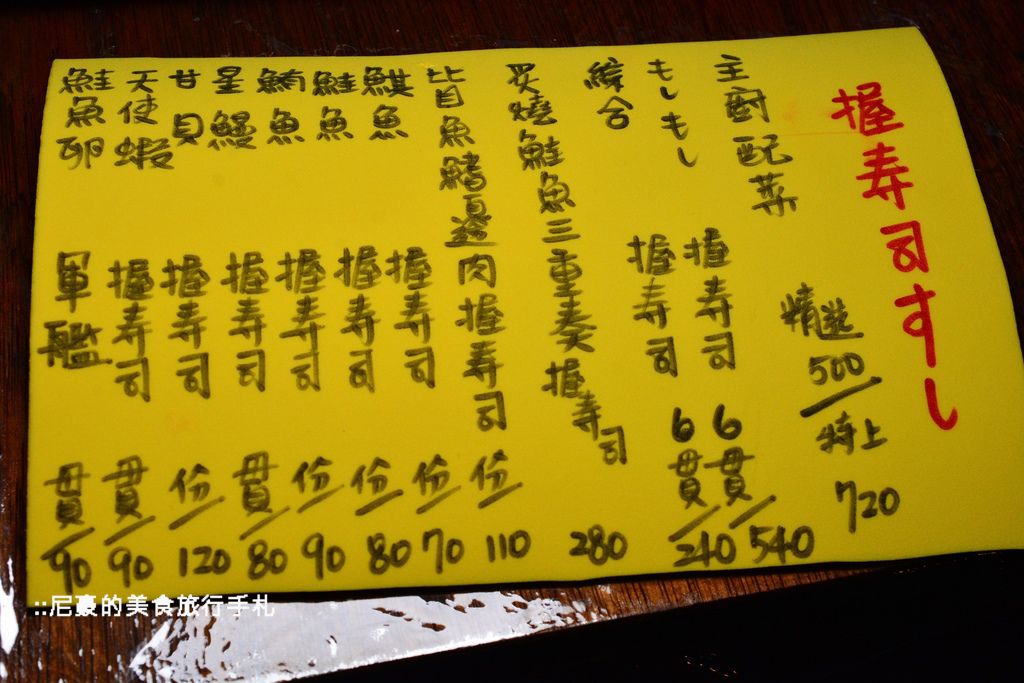 握寿司すし
主廚配菜 精選500/特上720
もしもし 握寿司 6貫/540
綜合 握寿司 6貫/240
炙燒鮭魚三重奏握寿司 280
比目魚鰭邊肉握寿司 份/110
鯕魚 握寿司 份/70
鮭魚 握寿司 份/80
鮪魚 握寿司 份/90
星鰻 握寿司 貫/80
甘貝 握寿司 份/120
天使蝦 握寿司 貫/90
鮭魚卵 軍艦 貫/90
::尼豪的美食旅行手札